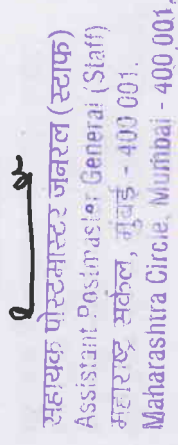 सहायक पोस्टमास्टर जनरल (स्टाफ)
Assistant Postmaster General (Staff)
महाराष्ट्र सर्कल, मुंबई - 400 001.
Maharashtra Circle, Mumbai - 400 001.